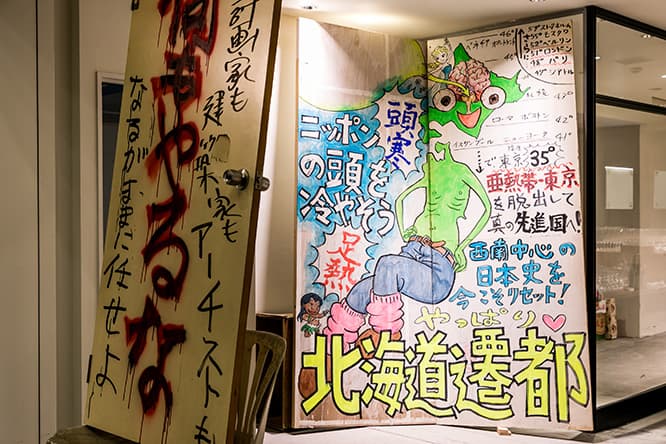 計画家も
建築家も
アーチストも
何もやるな
なるがままに任せよ
頭寒
ニッポン
の頭を
冷やそう
足熱
46°
45°
43°
42°
41°
ローマ ボストン
イスタンブール ニューヨーク
で東京35°
亜熱帯・東京
を脱出して
真の先進国へ!
西南中心の
日本史を
今こそリセット!
やっぱり
北海道遷都